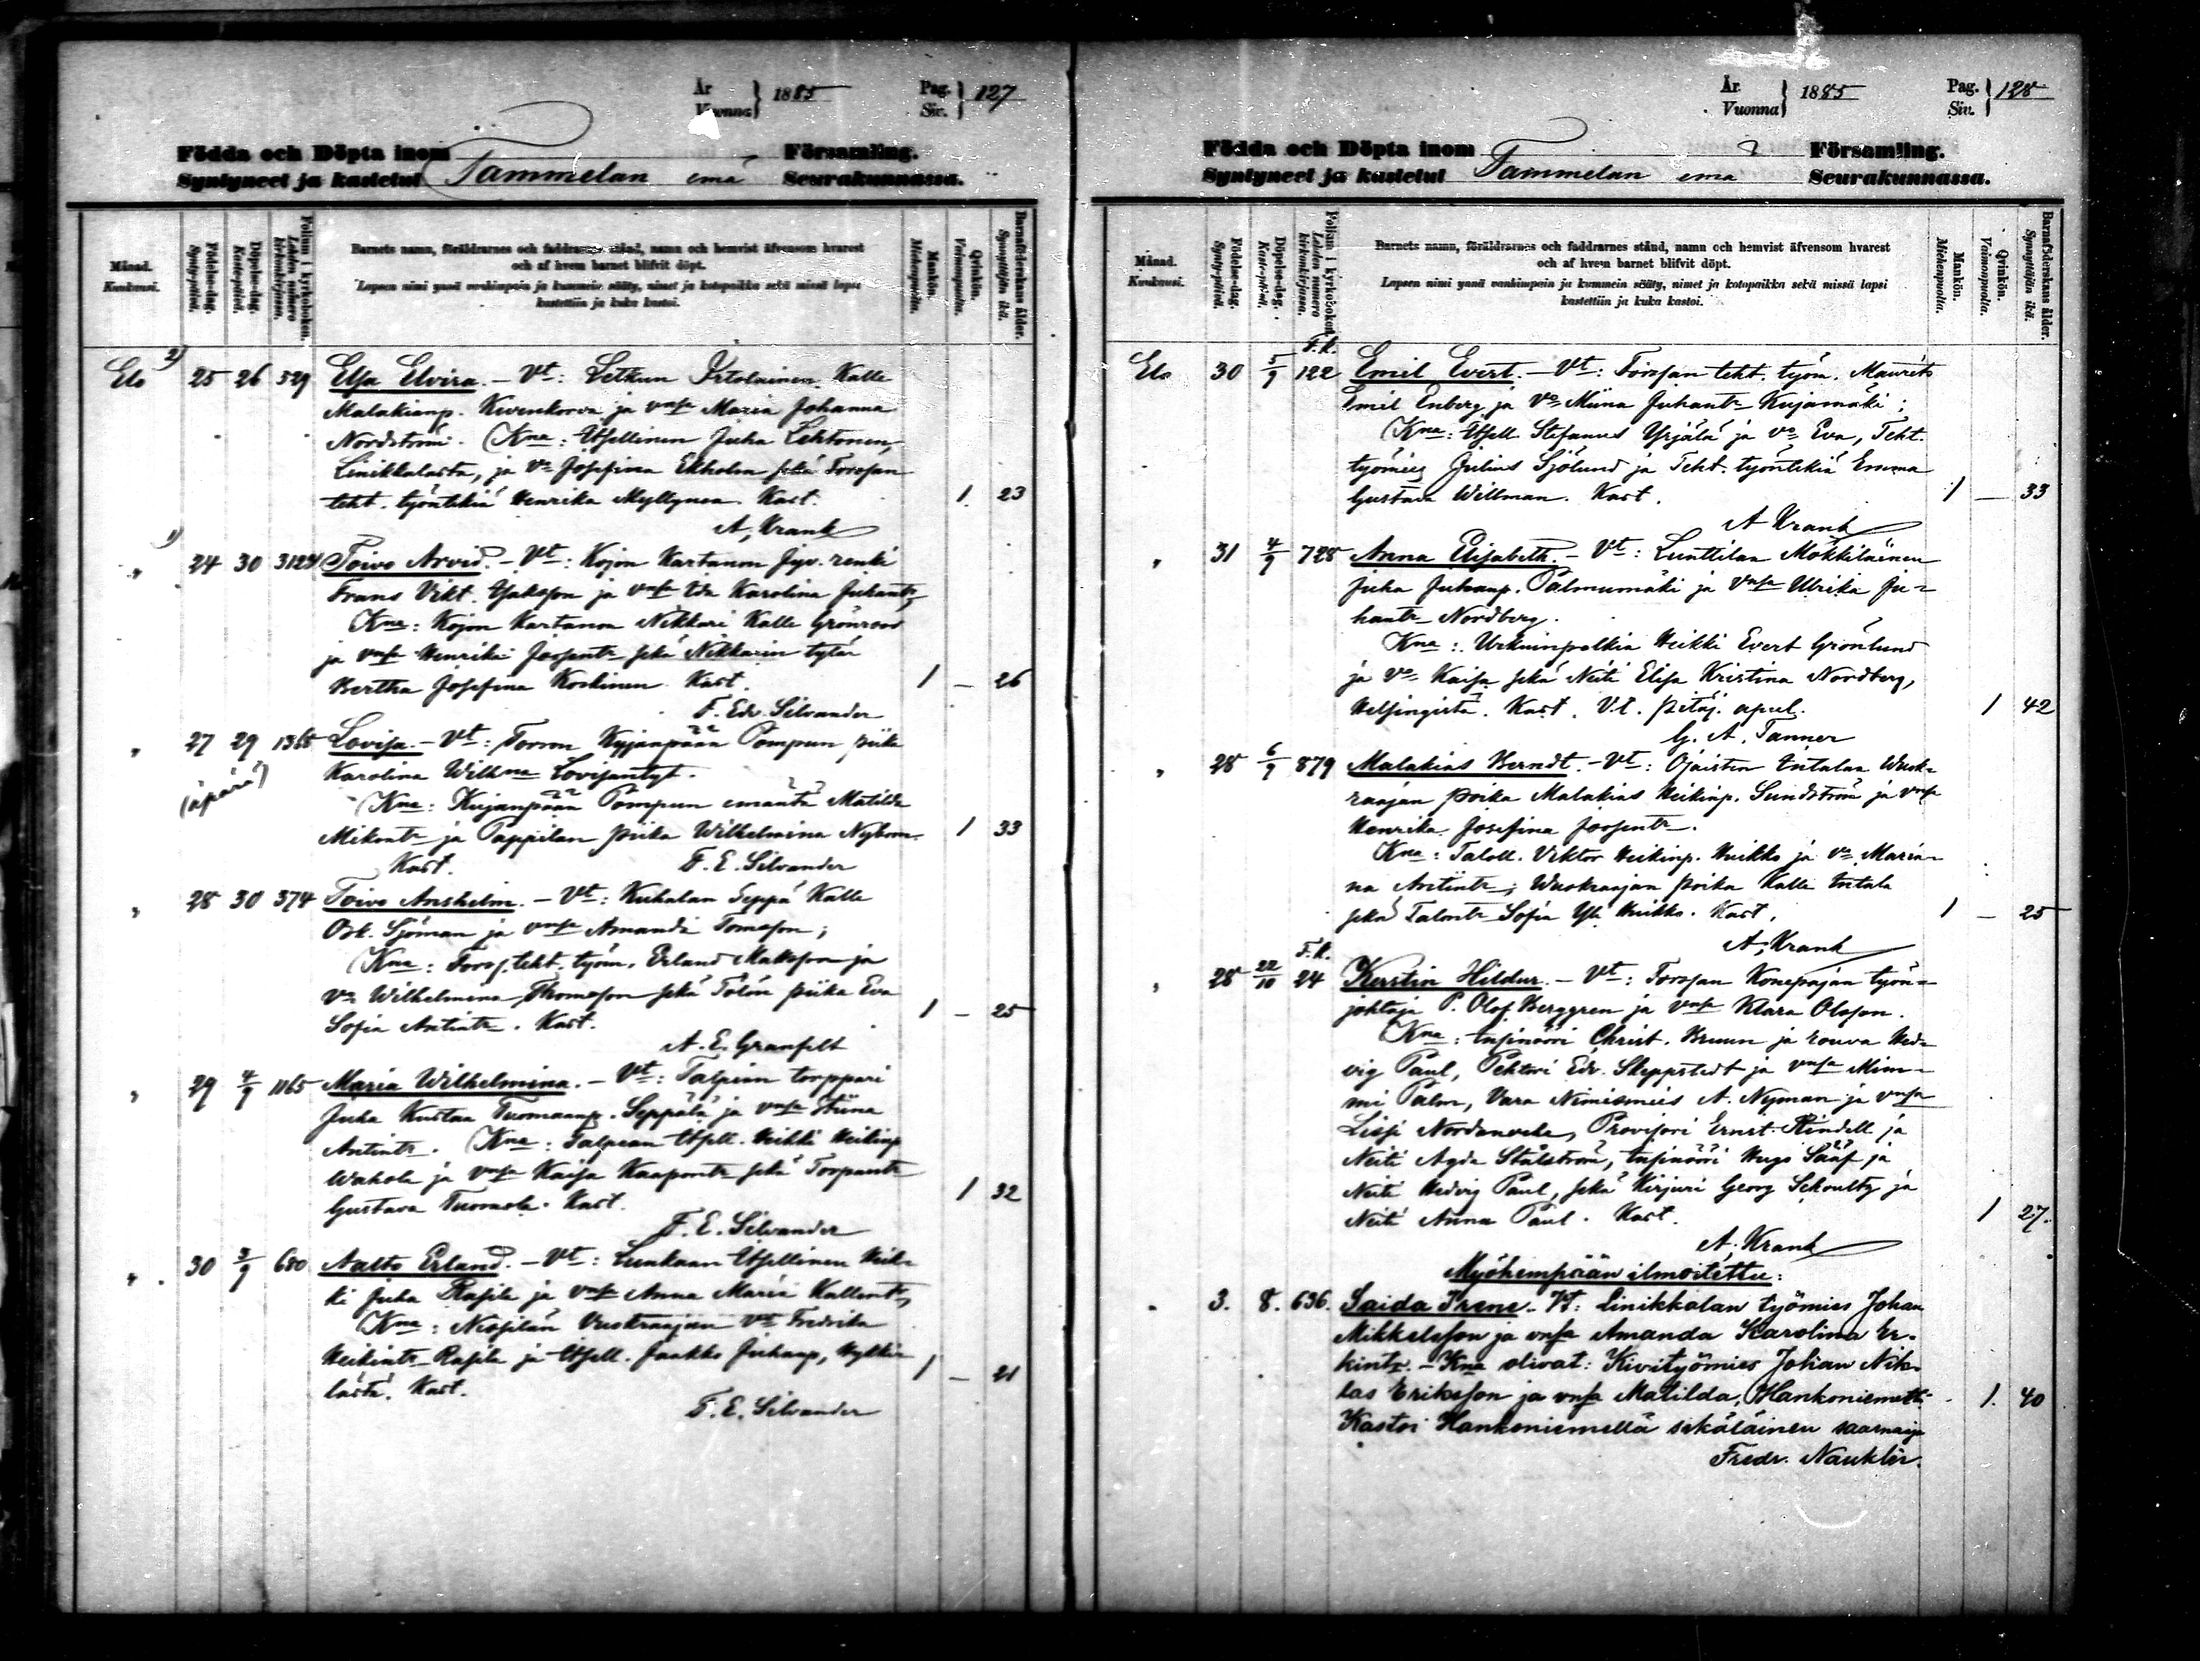 År
Vuonna } 1885
Pag.
Siv. } 127
Födda och Döpta inom Församling.
Syntyneet ja kastetut Tammelan emä Seurakunnassa.
Månad.
Kuukausi.
Födelse-dag.
Synty-päivä.
Döpelse-dag.
Kaste-päivä.
Folium i kyrkoboken.
Lehden numero kirkonkirjassa.
Barnets namn, föräldrarnes och faddrarnes stånd, namn och hemvist äfvensom hvarest
och af hvem barnet blifvit döpt.
Lapsen nimi ynnä vanhimpain ja kummein sääty, nimet ja kotopaikka sekä missä lapsi
kastettiin ja kuka kastoi.
Mankön.
Miehenpuolta.
Qvinkön.
Vaimonpuolta.
Barnaföderskans ålder.
Synnyttäjän ikä.
Elo 2) 25 26 529 Elsa Elvira. – Vt: Letkun Kalle
Malakianp. ja vnsa Maria Johanna
Nordström. (Kna: Itsellinen Juha Lehtonen,
Linikkalasta, ja vo Josefina Ekholm sekä Forssan
teht. työntekiä Henrika Myllynen. Kast. 1. 23
A. Krank
1) " 24 30 Toivo Arvid. – Vt: Kojon Kartanon renki
Frans Vikt. Isaksson ja vnsa Ida Karolina Juhantr,
Kna: Kojon Kartanon Nikkari Kalle Grönroos
ja vnsa Henrika sekä Nikkarin tytär
Bertha Josefina Koskinen. Kast. 1 – 26
F. Edv. Silvander
" 27 29 1365 Lovisa. – Vt: Torron Kujanpään Pompun piika
(äpärä) Karolina Wilhna Lovisantyt.
(Kna: Kujanpään Pompun emäntä Matilda
Mikontr ja Pappilan piika Wilhelmina Nybom. 1 33
Kast. F. E. Silvander
" 28 30 374 Toivo Anshelm. – Vt: Kuhalan Seppä Kalle
Osk. Sjöman ja vnsa Amanda Tomasson;
(Kna: Forss. teht. työm. Erland Isaksson ja
vo Wilhelmina Thomasson sekä Tölön piika Eva
Sofia Antintr. Kast. 1 – 25
A. E. Granfelt
" 29 4/9 1165 Maria Wilhelmina. – Vt: Talpian torppari
Juha Kustaa Tuomaanp. Seppälä ja vnsa Stiina
Antintr. (Kna: Talpian Itsell. Heikki Heikinp
Wahola ja vnsa Kaisa Kaapontr sekä Torpantr
Gustava Tuomola. Kast. 1 32
F. E. Silvander
" 30 3/9 680 Aalto Erland. – Vt: Lunkaan Itsellinen Heik-
ki Juha Rasila ja vnsa Anna Maria Kallentr,
(Kna: Vuokraajan vo Fredrika
Heikintr Rasila ja Itsell. Jaakko Juhanp, Hykki-
lästä. Kast. 1 – 21
F. E. Silvander
År
Vuonna } 1885
Pag.
Siv. } 128
Födda och Döpta inom Församling.
Syntyneet ja kastetut Tammelan emä Seurakunnassa.
Månad.
Kuukausi.
Födelse-dag.
Synty-päivä.
Döpelse-dag.
Kaste-päivä.
Folium i kyrkoboken.
Lehden numero kirkonkirjassa.
Barnets namn, föräldrarnes och faddrarnes stånd, namn och hemvist äfvensom hvarest
och af hvem barnet blifvit döpt.
Lapsen nimi ynnä vanhimpain ja kummein sääty, nimet ja kotopaikka sekä missä lapsi
kastettiin ja kuka kastoi.
Mankön.
Miehenpuolta.
Qvinkön.
Vaimonpuolta.
Barnaföderskans ålder.
Synnyttäjän ikä.
F.k.
Elo 30 5/9 122 Emil Evert. – Vt: Forssan teht. työm. Maurits
Emil Enberg ja vo Miina Juhantr Kujamäki;
(Kna: Itsell. Stefanus Yrjälä ja vo Eva, Teht.
työmies Julius Sjölund ja Teht. työntekiä Emma
Gustava Willman. Kast. 1 – 33
A Krank
" 31 4/9 728 Anna Elisabeth. – Vt: Lunttilan Mökkiläinen
Juha Juhanp. Palmumäki ja vnsa Ulrika Ju-
hantr Nordberg.
Kna: Urkuinpolkia Heikki Evert Grönlund
ja vo Kaisa sekä Neiti Elisa Kristina Nordberg,
Helsingistä. Kast. V.t. pitäj. apul. 1 42
G. A. Tanner
" 28 6/9 879 Malakias Berndt. – Vt: Ojaisten Intalan Wuok-
raajan poika Malakias Heikinp. Sundström ja vnsa
Henrika Josefina
Kna: Taloll. Viktor Heikinp. Huikko ja vo Maria-
na Antintr; Wuokraajan poika Kalle Intala
sekä Talontr Sofia Yli Huikko. Kast. 1 – 25
A. Krank
F.k.
" 28 22/10 24 Kerstin Hildur. – Vt: Forssan Konepajan työn-
johtaja P. Olof Berggren ja vnsa Klara Olsson.
(Kna: Insinööri Christ. Bruun ja rouva Hed-
vig Paul, Edv. Skeppstedt ja vnsa Mim-
mi Palm, Vara Nimismies A. Nyman ja vnsa
Provisori Ernst Rindell ja
Neiti Agda Stålström, Insinööri Hugo Sääf ja
Neiti Hedvig Paul, sekä Kirjuri Georg Schoultz ja
Neiti Anna Paul. Kast. 1 27.
A. Krank
Myöhempään ilmoitettu:
" 3. 8. 636. Saida Irene. – Vt: Linikkalan työmies Johan
Mikkelsson ja vnsa Amanda Karolina Er-
kintr. – Kna olivat: Kivityömies Johan Nik-
las Eriksson ja vnsa Matilda, Hankoniemeltä 1. 40
Kastoi Hankoniemellä sikäläinen saarnaaja
Fredr. Naukler.